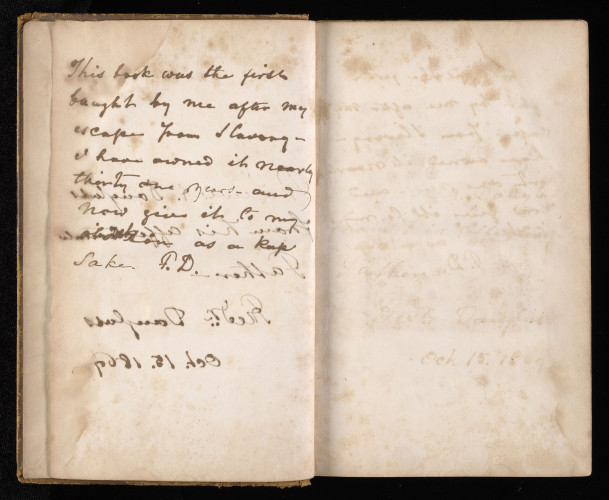 This book was the first
bought by me after my
escape from Slavery -
I have owned it nearly
thirty one years - and
now give it to my
as a keep
Sake. F.D.
father
Fredk. Douglass
Oct. 15. 1869